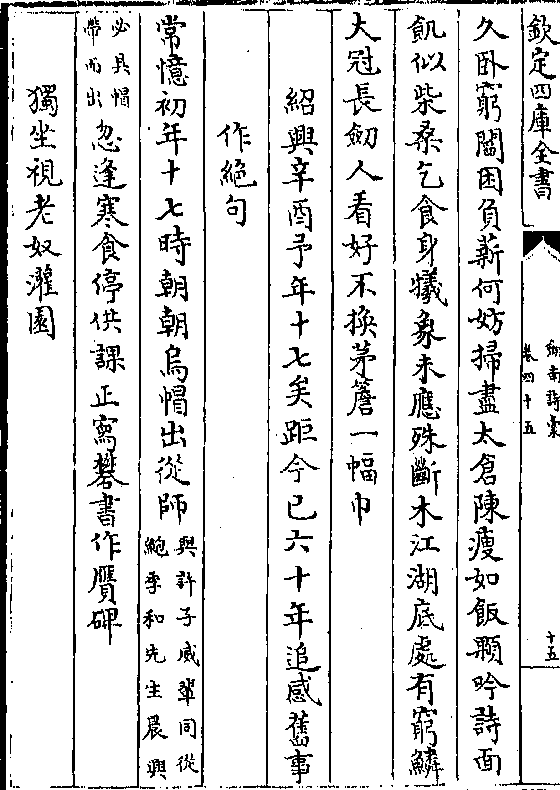 欽定四庫全書
劍南詩槀
卷四十五
十五
久卧窮閻困負薪何妨掃盡太倉陳瘦如飯顆吟詩面
飢似柴桑乞食身犧象未應殊斷木江湖底處有窮鱗
大冠長劒人看好不換茅簷一幅巾
紹興辛酉予年十七矣距今已六十年追感舊事
作絕句
常憶初年十七時朝朝烏帽出從師與許子威輩同從
鮑季和先生晨興
必具帽
帶而出忽逢寒食停供課正寫礬書作贋碑
獨坐視老奴灌園